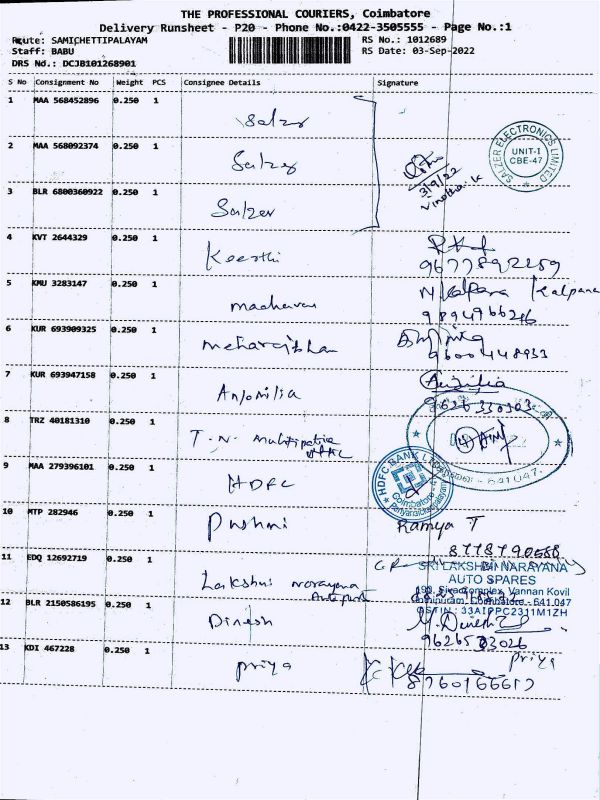 THE PROFESSIONAL COURIERS, Coimbatore
Delivery Runsheet - P20 - Phone No.:0422-3505555 - Page No.:1
Route: SAMICHETTIPALAYAM RS No.: 1012689
Staff: BABU RS Date: 03-Sep-2022
DRS Nd.: DCJB101268901
S No Consignment No Weight PCS Consignee Details Signature
1 MAA 568452896 0.250 1 Salzer
2 MAA 568092374 0.250 1 Salzer
SALZER ELECTRONICS LIMITED UNIT-I CBE-47
3/9/22
Vinotha.K
3 BLR 6800360922 0.250 1 Salzer
4 KVT 2644329 0.250 1 Keerthi
9677892259
5 KMU 3283147 0.250 1 madhavan N Kalpana Kalpana
9894966246
6 KUR 693909325 0.250 1
9600448933
7 KUR 693947158 0.250 1
9626330303
8 TRZ 40181310 0.250 1 T.N.
641 047.
9 MAA 279396101 0.250 1 HDFC
HDFC BANK LTD Coimbatore
10 MTP 282946 0.250 1 Ramya T
8778790558
11 EDQ 12692719 0.250 1 Lakshmi Narayana
SRI LAKSHMI NARAYANA
AUTO SPARES
Vannan Kovil
Coimbatore - 641 047
GSTIN : 33AIPPC2311M1ZH
12 BLR 2150586195 0.250 1 Dinesh M. Dinesh
13 KDI 467228 0.250 1 Priya Priya
8760166617